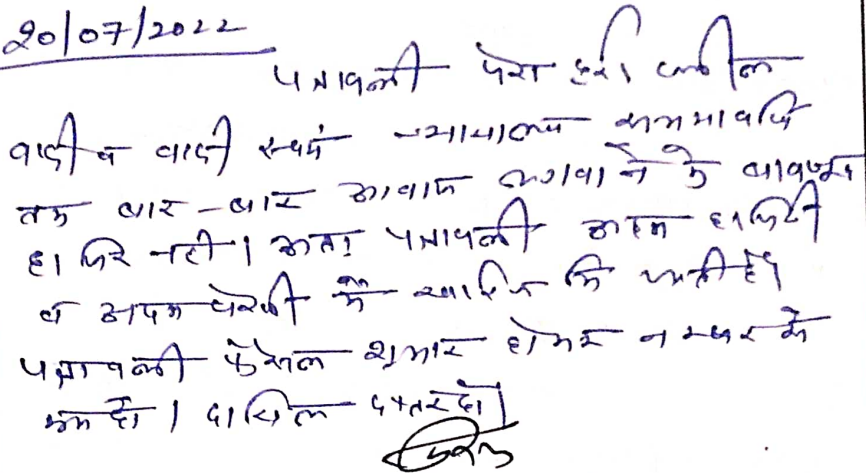 20/07/2022
पत्रावली पेश हुई। वकील
वादी व वादी स्वयं न्यायालय समयावधि
तक बार-बार आवाज लगवाने के बावजूद
हाजिर नही। अतः पत्रावली अदम हाजिरी
व अदम पैरवी में खारिज कि जाती है।
पत्रावली फैसल शुमार होकर नम्बर से
कम हो। दाखिल दफ्तर हो।